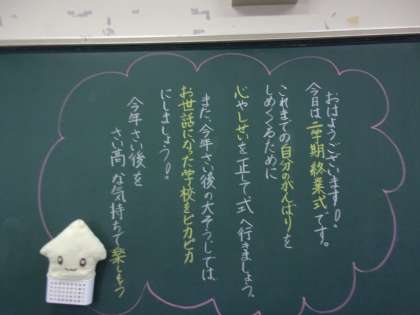 おはようございます!。
今日は二学期終業式です。
これまでの自分のがんばりを
しめくくるために
心やしせいを正して式へ行きましょう。
また、今年さい後の大そうじでは
お世話になった学校をピカピカ
にしましょう!。
今年さい後を
さい高な気持ちで楽しもう